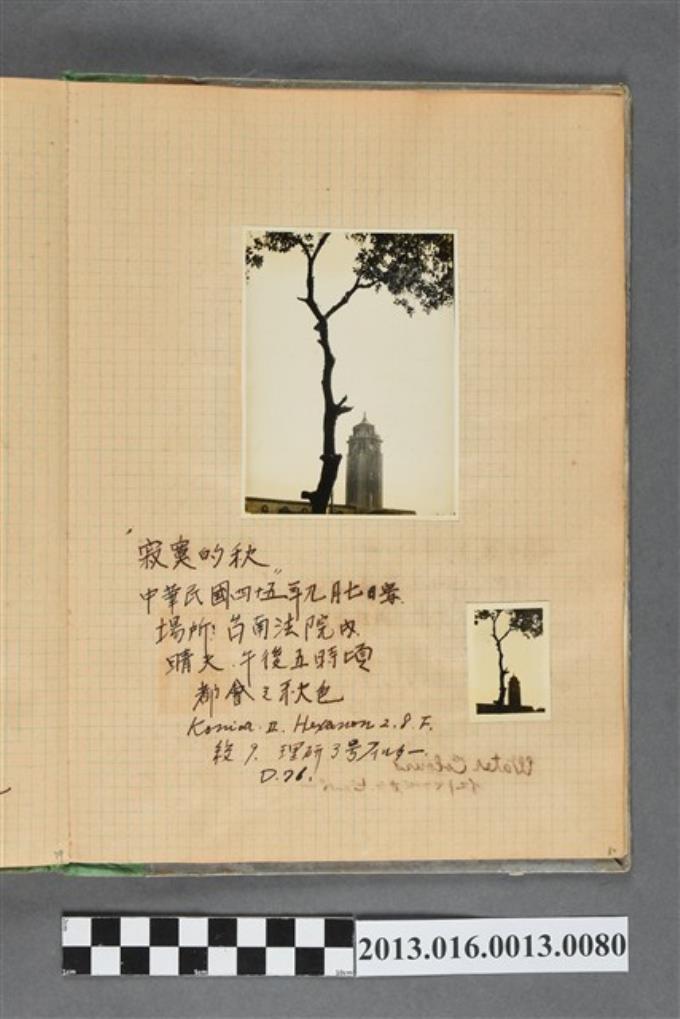 "寂寞的秋"
中華民國四十五年九月七日
場所:台南法院
晴天.午後五時頃
都會之秋色
Konica.II. Hexanon 2.8.F.
絞9.理研3号フィルター.
D.76.
Water Colours
2013.016.0013.0080